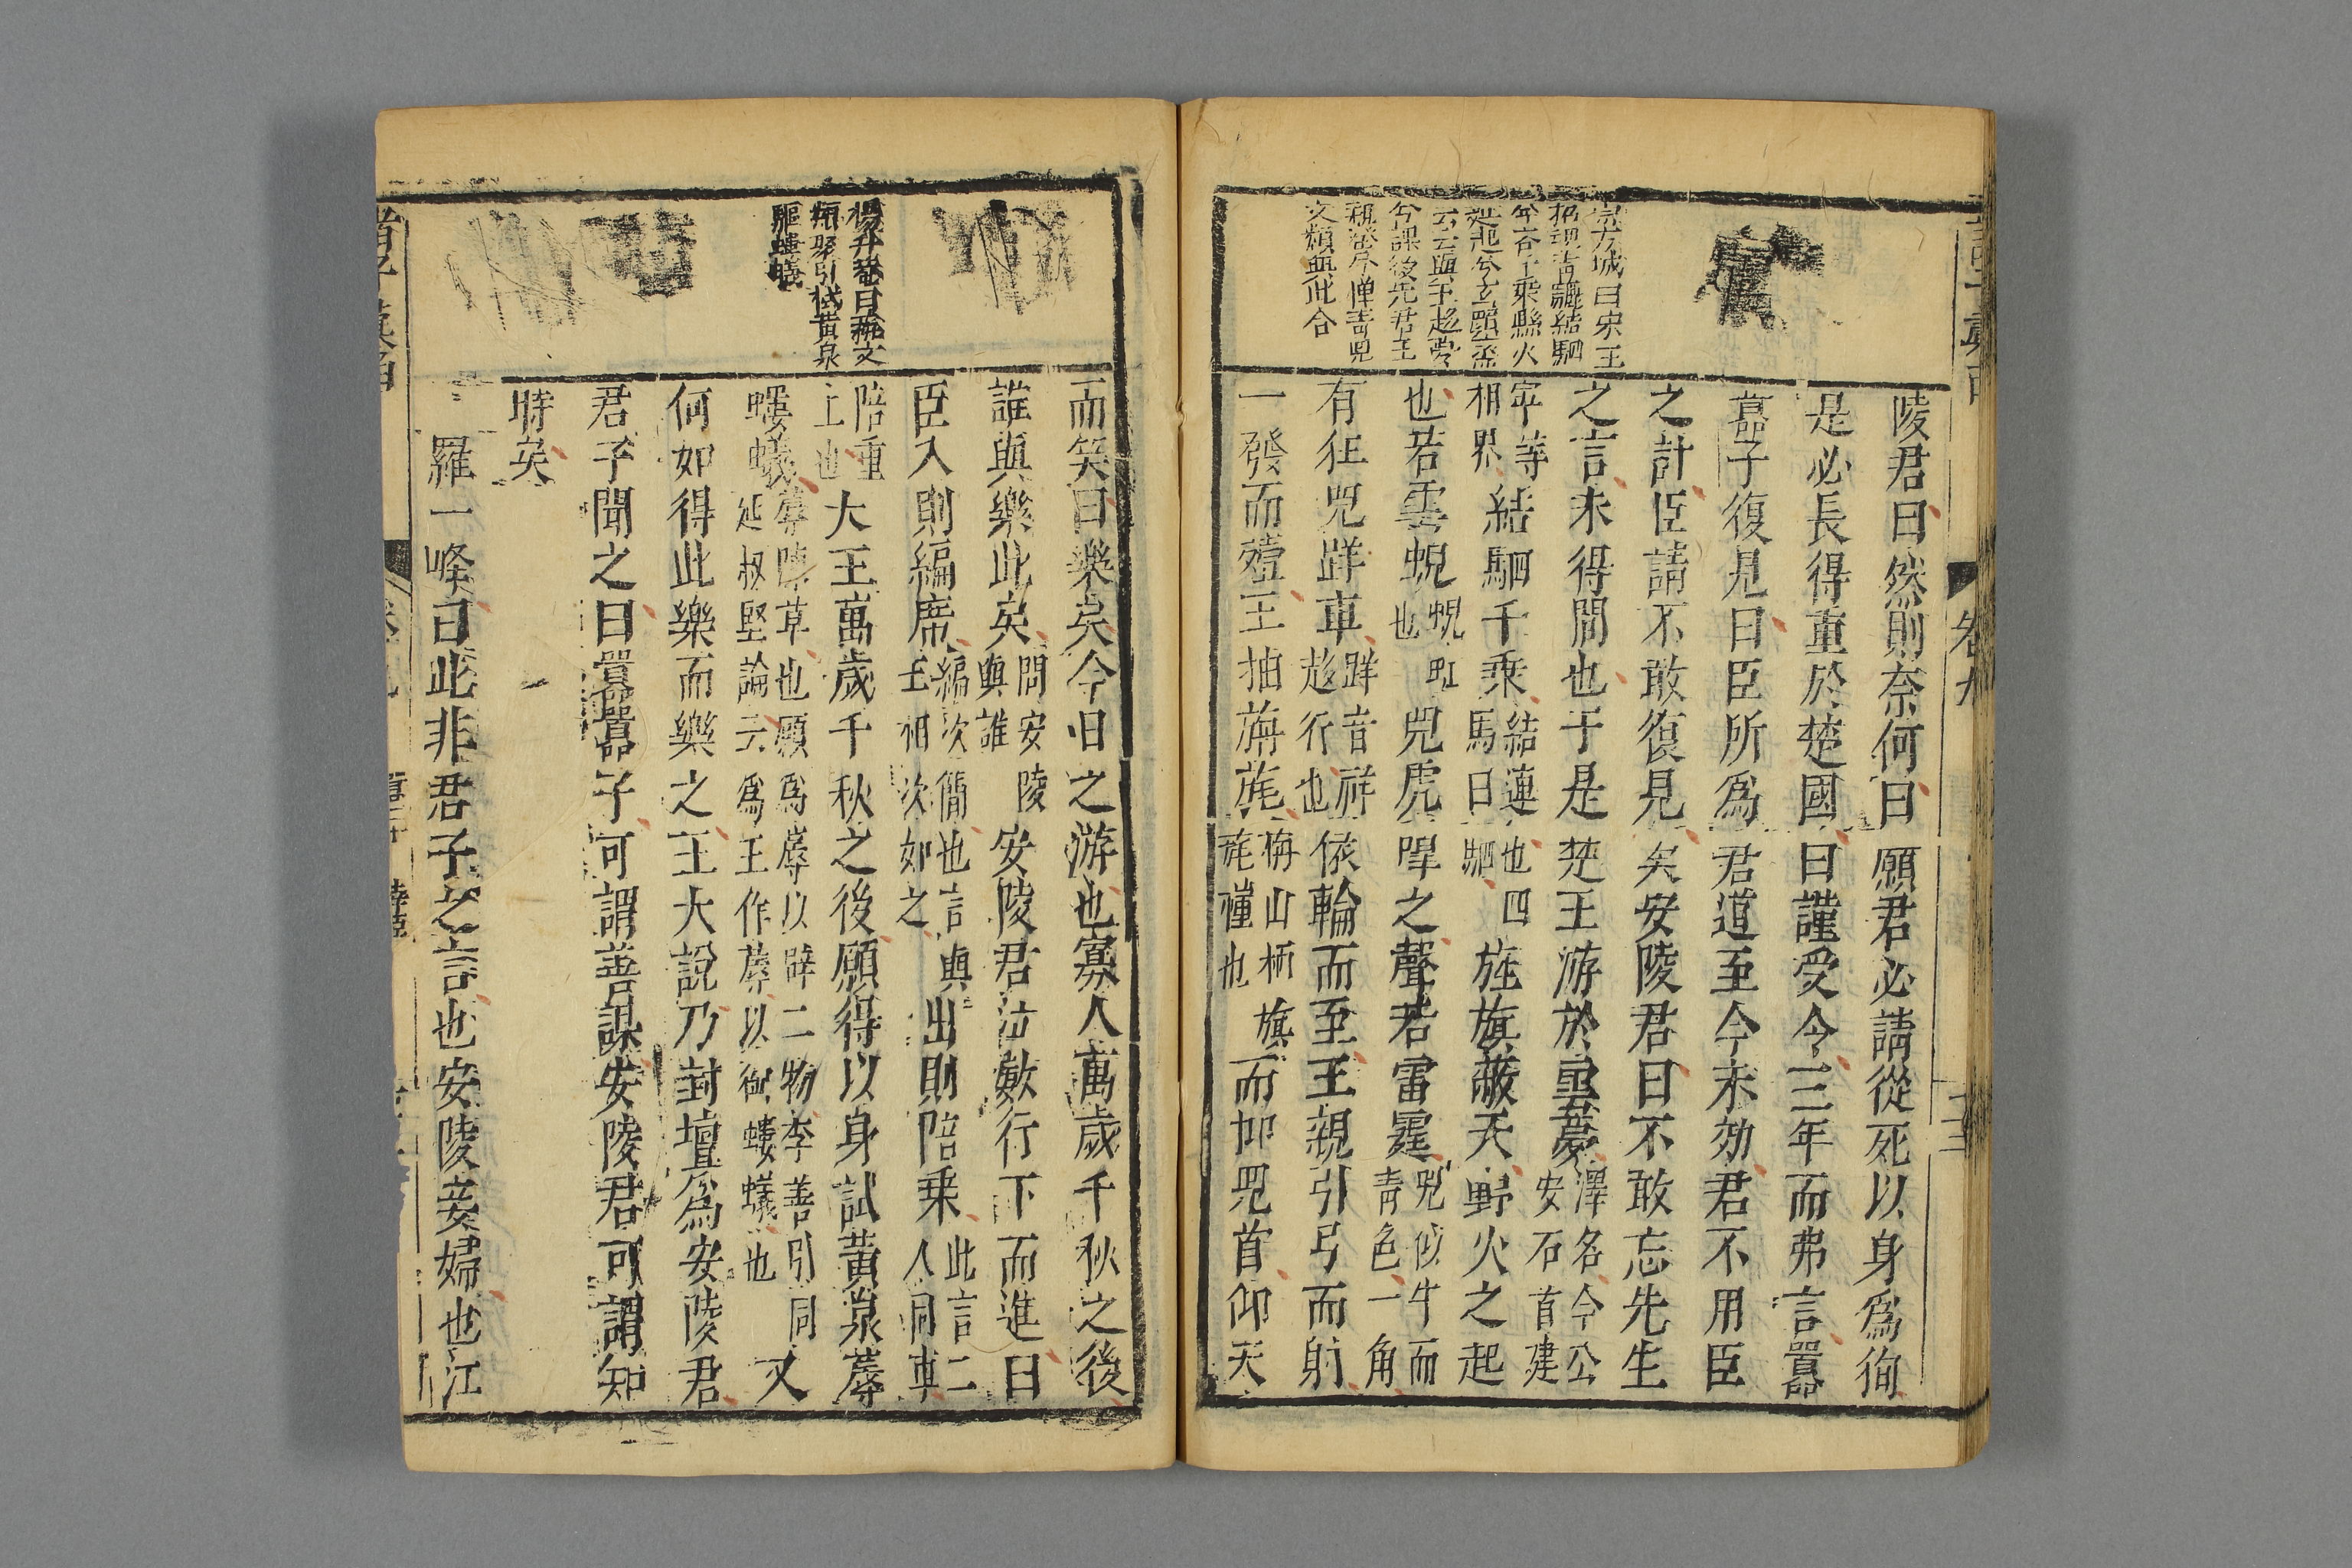 陵君曰然則奈何曰願君必請從死以身爲徇
是必長得重於楚國曰謹受令三年而弗言嚚
子復見曰臣所爲君道至今未効君不用臣
之計臣請不敢復見矣安陵君曰不敢忘先生
之言未得間也于是楚王游於雲夢澤名今公
安石首建
寜等
相界結駟千乘結連也四
馬曰駟旌旗蔽天野火之起
也若雲蜺蜺虹
也兕虎嘷之聲若雷霆兕似牛而
青色一角
有狂兕𨍮車𨍮音祥
趍行也依輪而至王親引弓而射
一發而殪王抽旃旄旃山柄
旄幢也旗而抑兕首仰天
宗方城曰宋玉
招魂青驪結駟
兮齊千乘縣火
延起兮玄顔烝
云云與王趍夢
兮課後先君王
親發兮憚青兕
文頗與此合
卷九
而笑曰樂矣今日之游也寡人萬歲千秋之後
誰與樂此矣問安陵
與誰安陵君泣數行下而進曰
臣入則編席編次簡也言與
王相次如之出則陪乗此言二
人同車
陪重
上也大王萬歲千秋之後願得以身試黃泉蓐
螻蟻蓐陳草也願爲蓐以辟二物李善引同
延叔堅論云爲王作蓐以御螻蟻也又
何如得此樂而樂之王大說乃封壇爲安陵君
君子聞之曰嚚子可謂善謀安陵君可謂知
時矣
羅一峰曰此非君子之言也安陵妾婦也江
楊升菴曰藝文
類聚引試黃泉
驅螻蟻